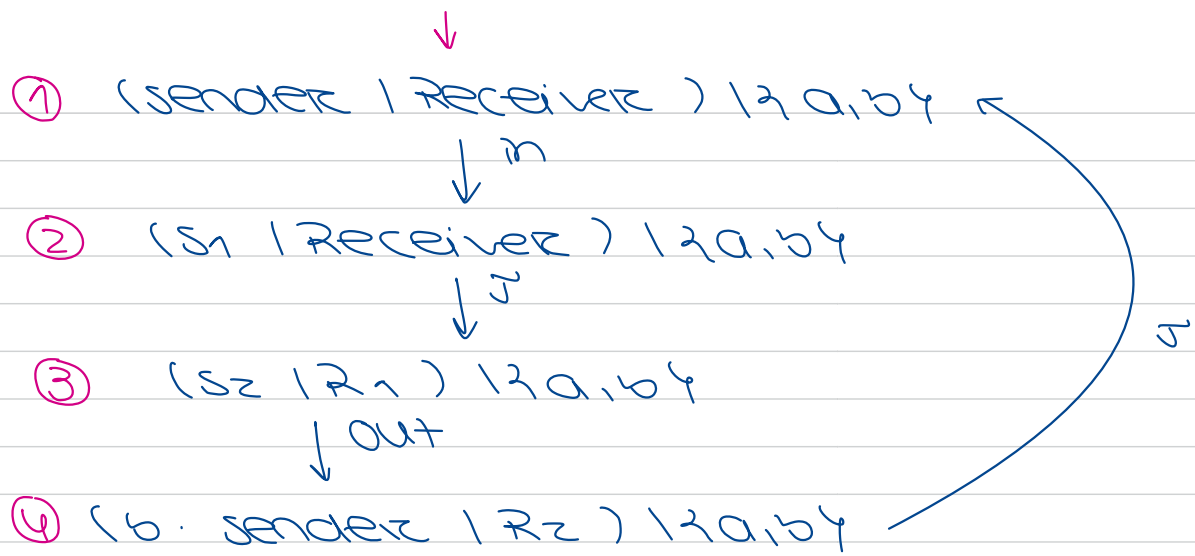 ① (sender | Receiver) \ {a,b}
in
② (S1 | Receiver) \ {a,b}
τ
③ (S2 | R1) \ {a,b}
τ
out
④ (b. sender | R2) \ {a,b}